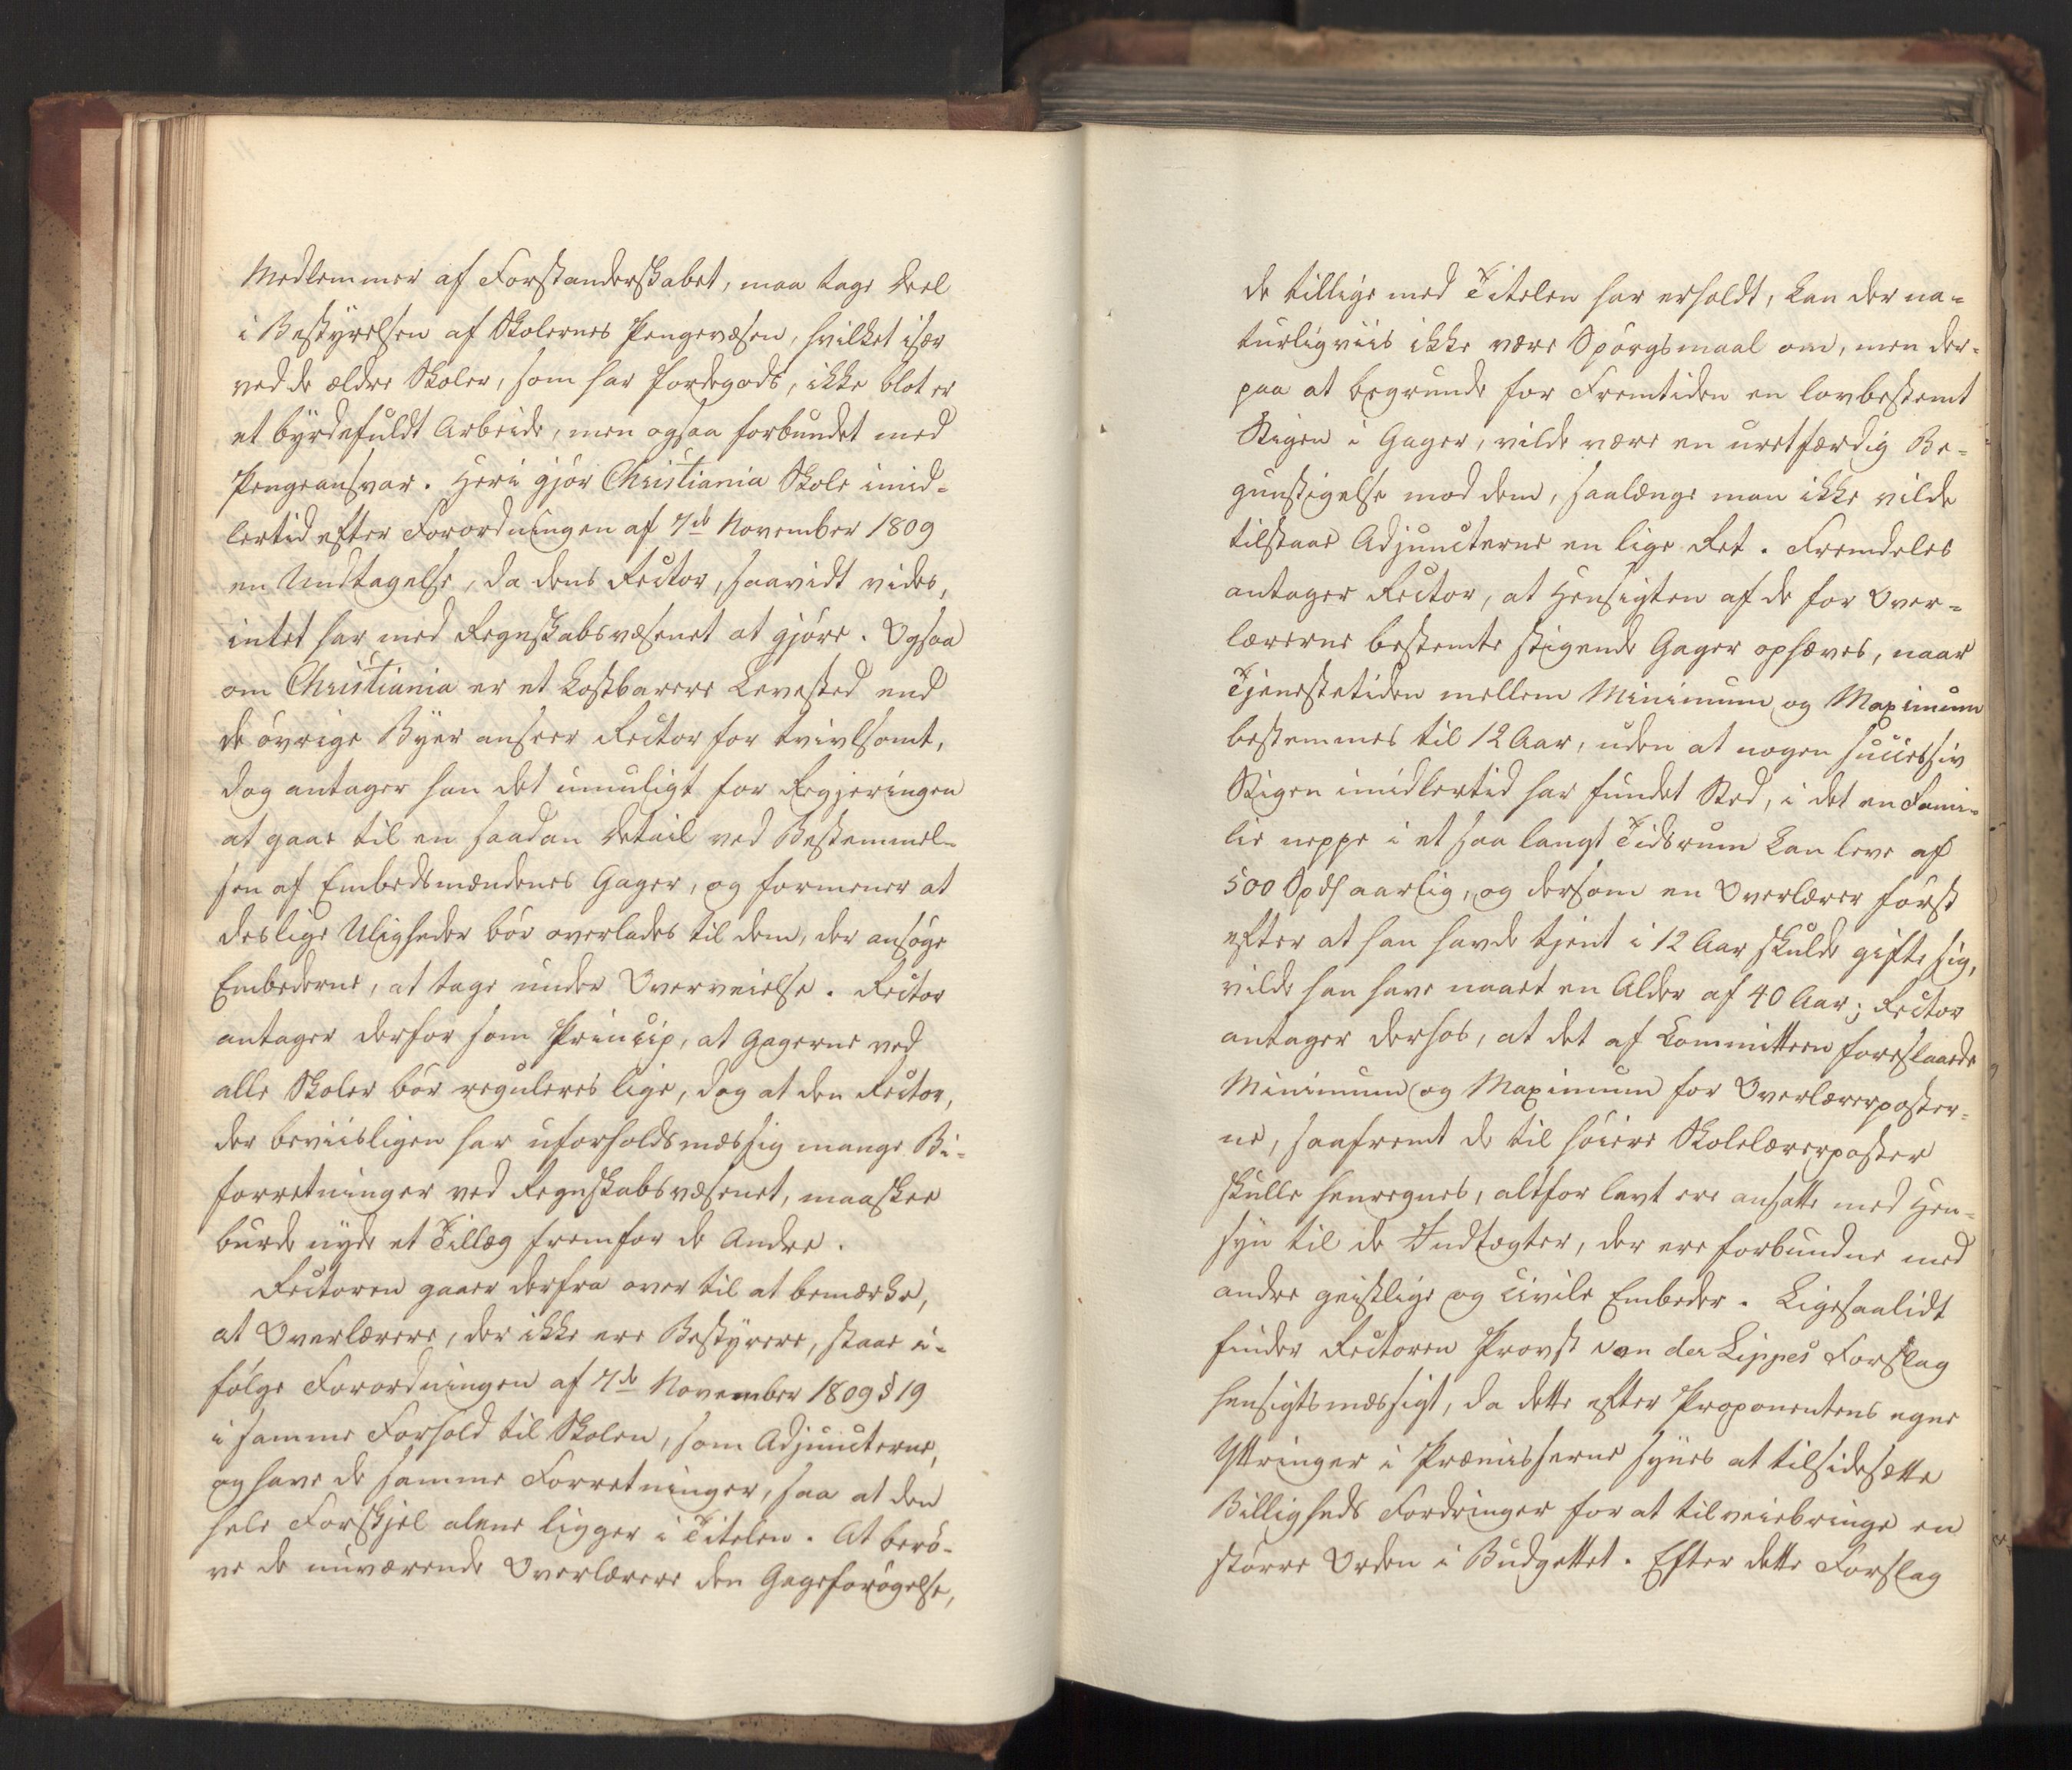 Medlemmer af Forstanderskabet, maa tage Deel
i Bestyrelsen af Skolernes Pengevæsen, hvilket især
ved de ældre Skoler, som har Jordegods, ikke blot er
et byrdefuldt Arbeide, men ogsaa forbundet med
Pengeansvar. Heri gjør Christiania Skole imid-
lertid efter Forordningen af 7de November 1809
en Undtagelse, da dens Rector, saavidt vides,
intet har med Regnskabsvæsenet at gjøre. Ogsaa
om Christiania er et kostbarere Levested end
de øvrige Byer anseer Rector for tvivlsomt,
dog antager han det umuligt for Regjeringen
at gaae til en saadan Detail ved Bestemmel-
sen af Embedsmændenes Gager, og formener at
deslige Uligheder bør overlades til dem, der ansøge
Embederne, at tage under Overveielse. Rector
antager derfor som Princip, at Gagerne ved
alle Skoler bør reguleres lige, dog at den Rector,
der beviisligen har uforholdsmæssig mange Bi-
forretninger ved Regnskabsvæsenet, maaskee
burde nyde et Tillæg fremfor de Andre.
Rectoren gaaer derfra over til at bemærke,
at Overlærere, der ikke ere Bestyrere, staae i-
følge Forordningen af 7de November 1809 § 19
i samme Forhold til Skolen, som Adjuncterne,
og have de samme Forretninger, saa at den
hele Forskjel alene ligger i Titelen. At berø-
ve de nuværende Overlærere den Gageforøgelse,
de tillige med Titelen har erholdt, kan der na-
turligviis ikke være Spørgsmaal om, men der-
paa at begrunde for Fremtiden en lovbestemt
Stigen i Gager, vilde være en uretfærdig Be-
gunstigelse mod dem, saalænge man ikke vilde
tilstaae Adjuncterne en lige Ret. Fremdeles
antager Rector, at Hensigten af de for Over-
lærerne bestemte stigende Gager ophæves, naar
Tjenestetiden mellem Minimum og Maximum
bestemmes til 12 Aar, uden at nogen successiv
Stigen imidlertid har fundet Sted, i det en Fami-
lie neppe i et saa langt Tidsrum kan leve af
500 Spd aarlig, og dersom en Overlærer først
efter at han havde tjent i 12 Aar skulde gifte sig,
vilde han have naaet en Alder af 40 Aar; Rector
antager derhos, at det af Committeen foreslaaede
Minimum og Maximum for Overlærerposter-
ne, saafremt de til høiere Skolelærerposter
skulle henregnes, altfor lavt ere ansatte med Hen-
syn til de Indtægter, der ere forbundne med
andre geistlige og civile Embeder. Ligesaalidt
finder Rectoren Provst von der Lippes Forslag
hensigtsmæssigt, da dette efter Proponentens egne
Yttringer i Præmisserne synes at tilsidesætte
Billigheds Fordringer for at tilveiebringe en
større Orden i Budgettet. Efter dette Forslag